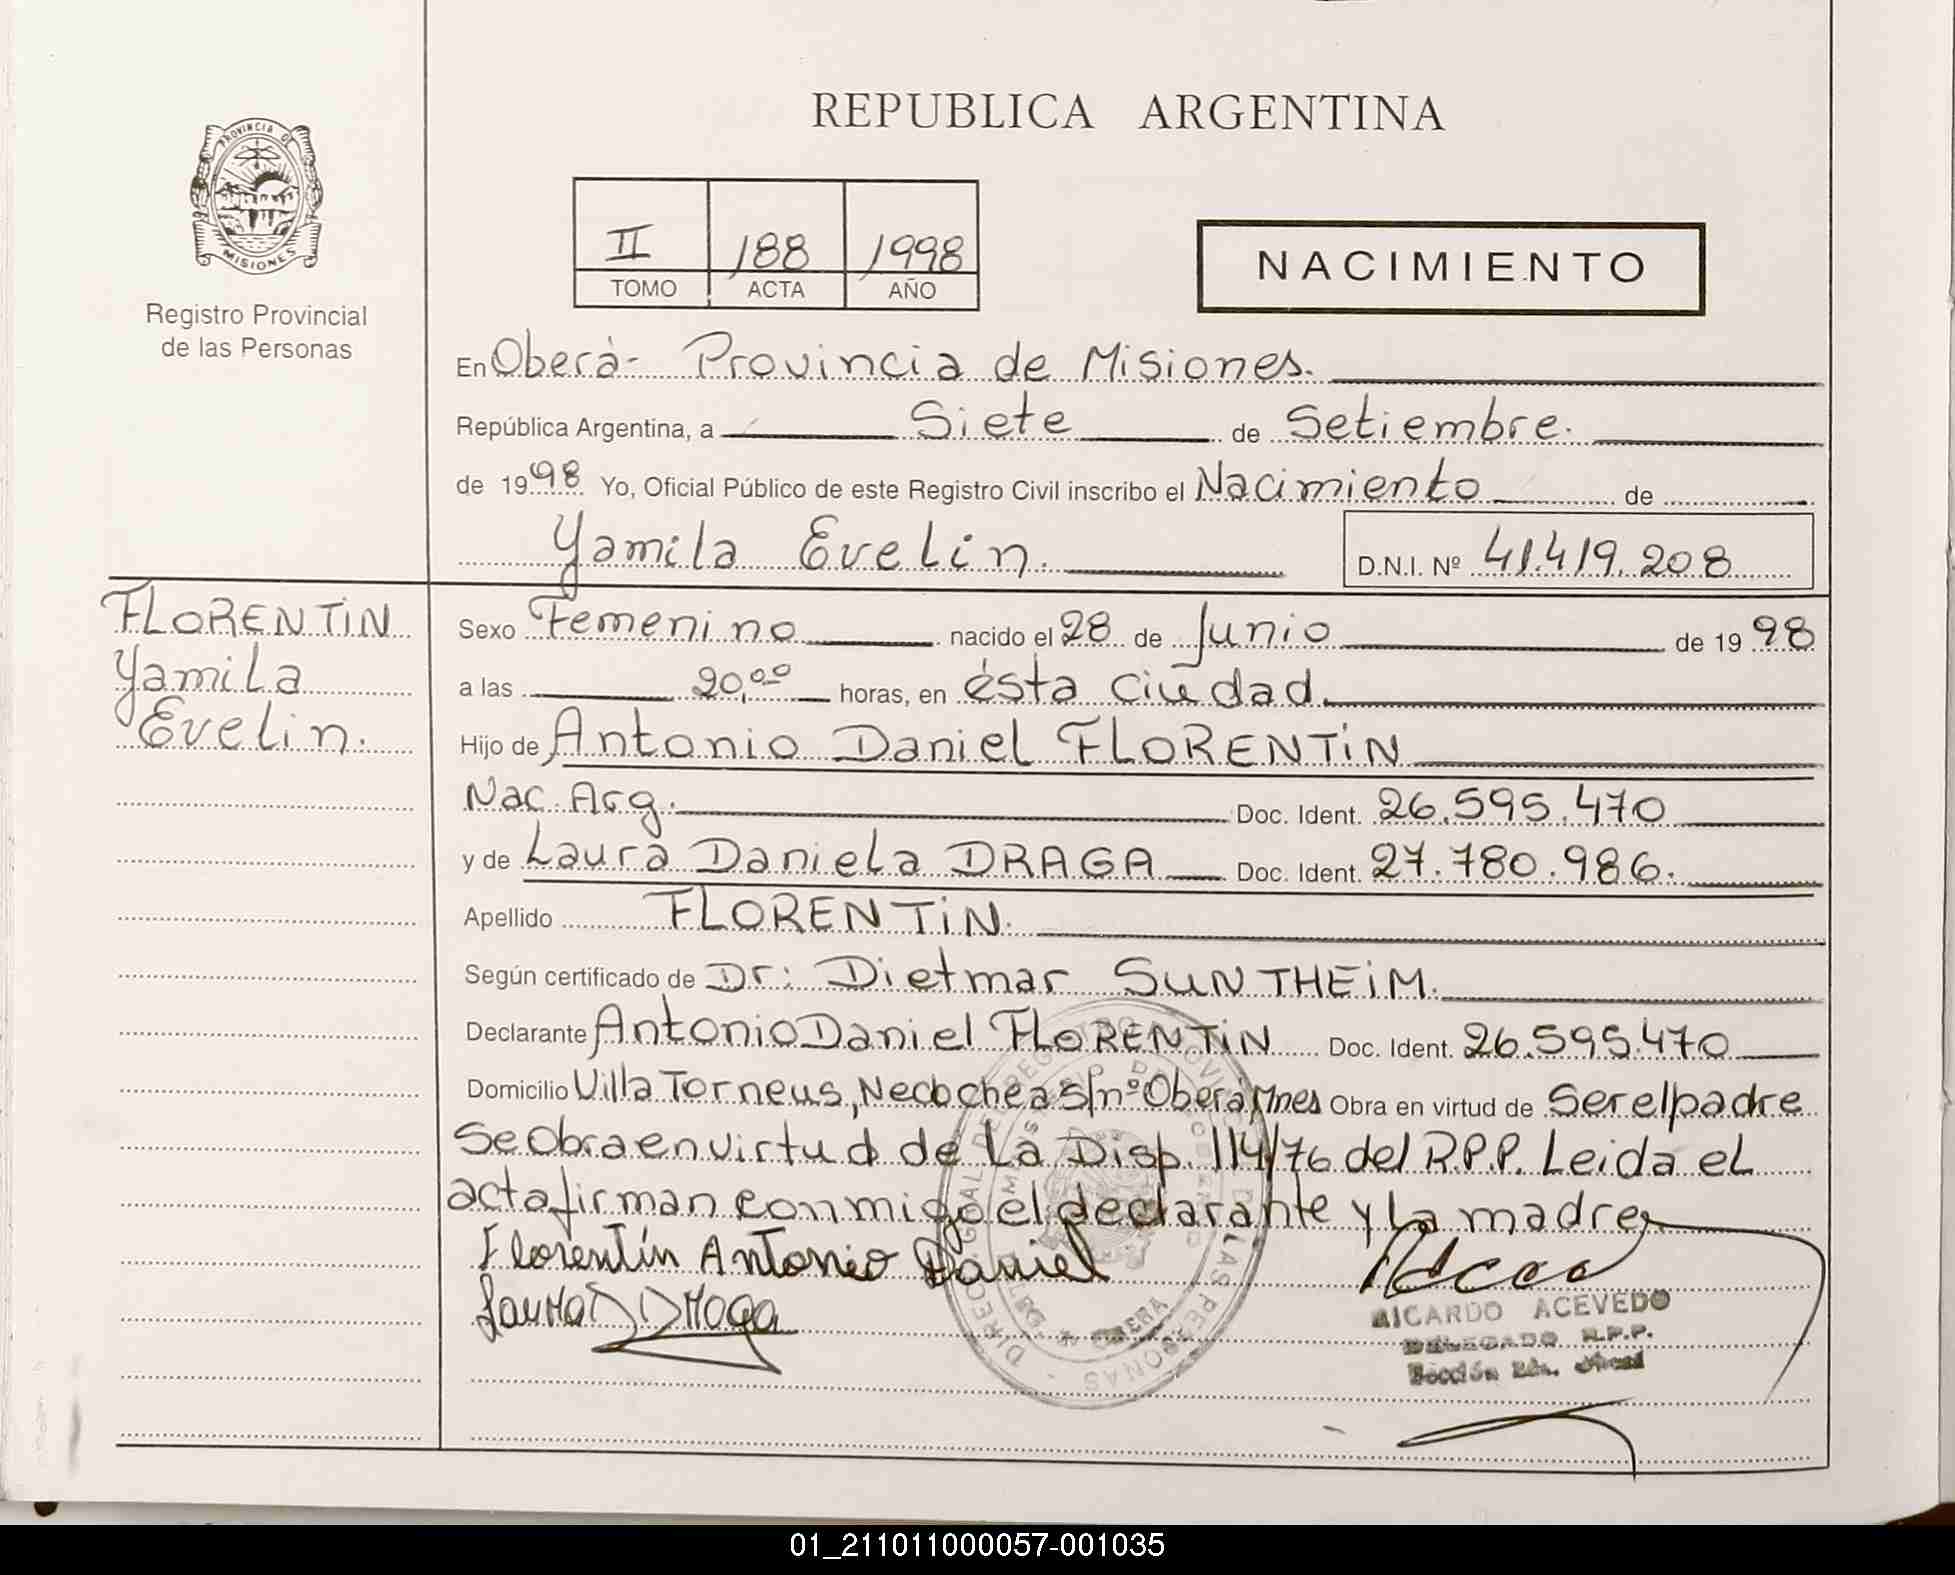 REPUBLICA ARGENTINA
PROVINCIA DE
MISIONES
Registro Provincial
de las Personas
II 188 1998
TOMO ACTA AÑO
NACIMIENTO
En Oberà - Provincia de Misiones.
República Argentina, a Siete de Setiembre.
de 1998 Yo, Oficial Público de este Registro Civil inscribo el Nacimiento de
Yamila Evelin. D.N.I. Nº 41.419.208
FLORENTiN
Yamila
Evelin.
Sexo Femenino nacido el 28 de Junio de 1998
a las 20,00 horas, en ésta Ciudad.
Hijo de Antonio Daniel FLORENTiN
Nac. Arg. Doc. Ident. 26.595.470
y de Laura Daniela DRAGA Doc. Ident. 27.780.986.
Apellido FLORENTiN.
Según certificado de Dr: Dietmar SUNTHEiM.
Declarante Antonio Daniel FLORENTiN Doc. Ident. 26.595.470
Domicilio Villa Torneus, Necochea S/nº Oberá Mnes Obra en virtud de Ser el padre
Se Obra en virtud de La Disp. 114/76 del R.P.P. Leida el
acta firman conmigo el declarante y La madre
Florentín Antonio Daniel
Laura D Draga
RICARDO ACEVEDO
DELEGADO R.P.P.
Sección
OBERA
01_211011000057-001035